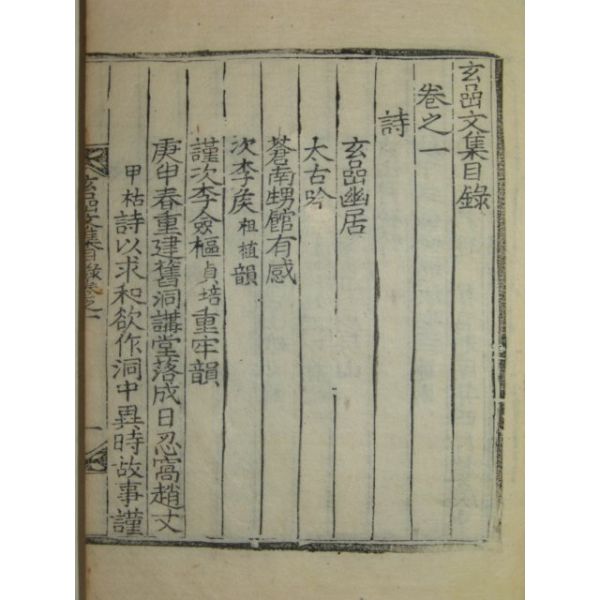 玄嵒文集目錄
卷之一
詩
玄嵒幽居
太古吟
蒼南甥館有感
次李矦祖植韻
謹次李僉樞貞培重牢韻
庚申春重建舊洞講堂落成日忍窩趙丈
甲枯詩以求和欲作洞中異時故事謹
玄嵒文集目錄卷之一
一